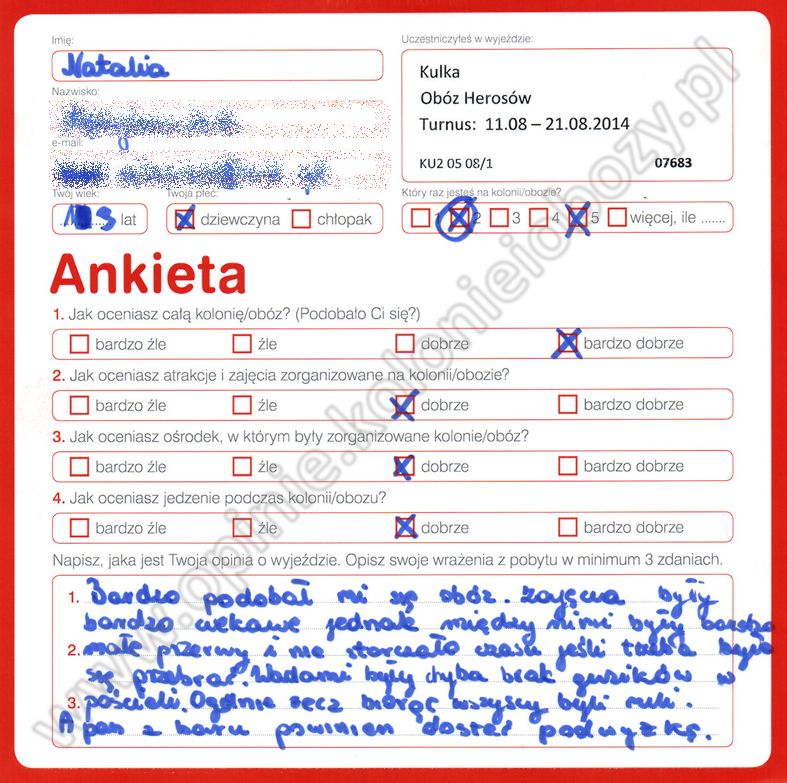 Imię:
Natalia
Nazwisko:
e-mail:
Twój wiek:
lat
Twoja płeć:
dziewczyna chłopak
Uczestniczyłeś w wyjeździe:
Kulka
Obóz Herosów
Turnus: 11.08 – 21.08.2014
KU2 05 08/1 07683
Który raz jesteś na kolonii/obozie?
1 2 3 4 5 więcej, ile .......
Ankieta
1. Jak oceniasz całą kolonię/obóz? (Podobało Ci się?)
bardzo źle źle dobrze bardzo dobrze
2. Jak oceniasz atrakcje i zajęcia zorganizowane na kolonii/obozie?
bardzo źle źle dobrze bardzo dobrze
3. Jak oceniasz ośrodek, w którym były zorganizowane kolonie/obóz?
bardzo źle źle dobrze bardzo dobrze
4. Jak oceniasz jedzenie podczas kolonii/obozu?
bardzo źle źle dobrze bardzo dobrze
Napisz, jaka jest Twoja opinia o wyjeździe. Opisz swoje wrażenia z pobytu w minimum 3 zdaniach.
1. Bardzo podobał mi się obóz. Zajęcia były
bardzo ciekawe jednak między nimi były bardzo
2. małe przerwy i nie starczało czasu jeśli trzeba było
się przebrać. Wadami był chyba brak guzików w
3. pościeli. Ogólnie rzecz biorąc wszyscy byli mili.
A pan z baru powinien dostać podwyżkę.
www.opinie.kolonieiobozy.pl